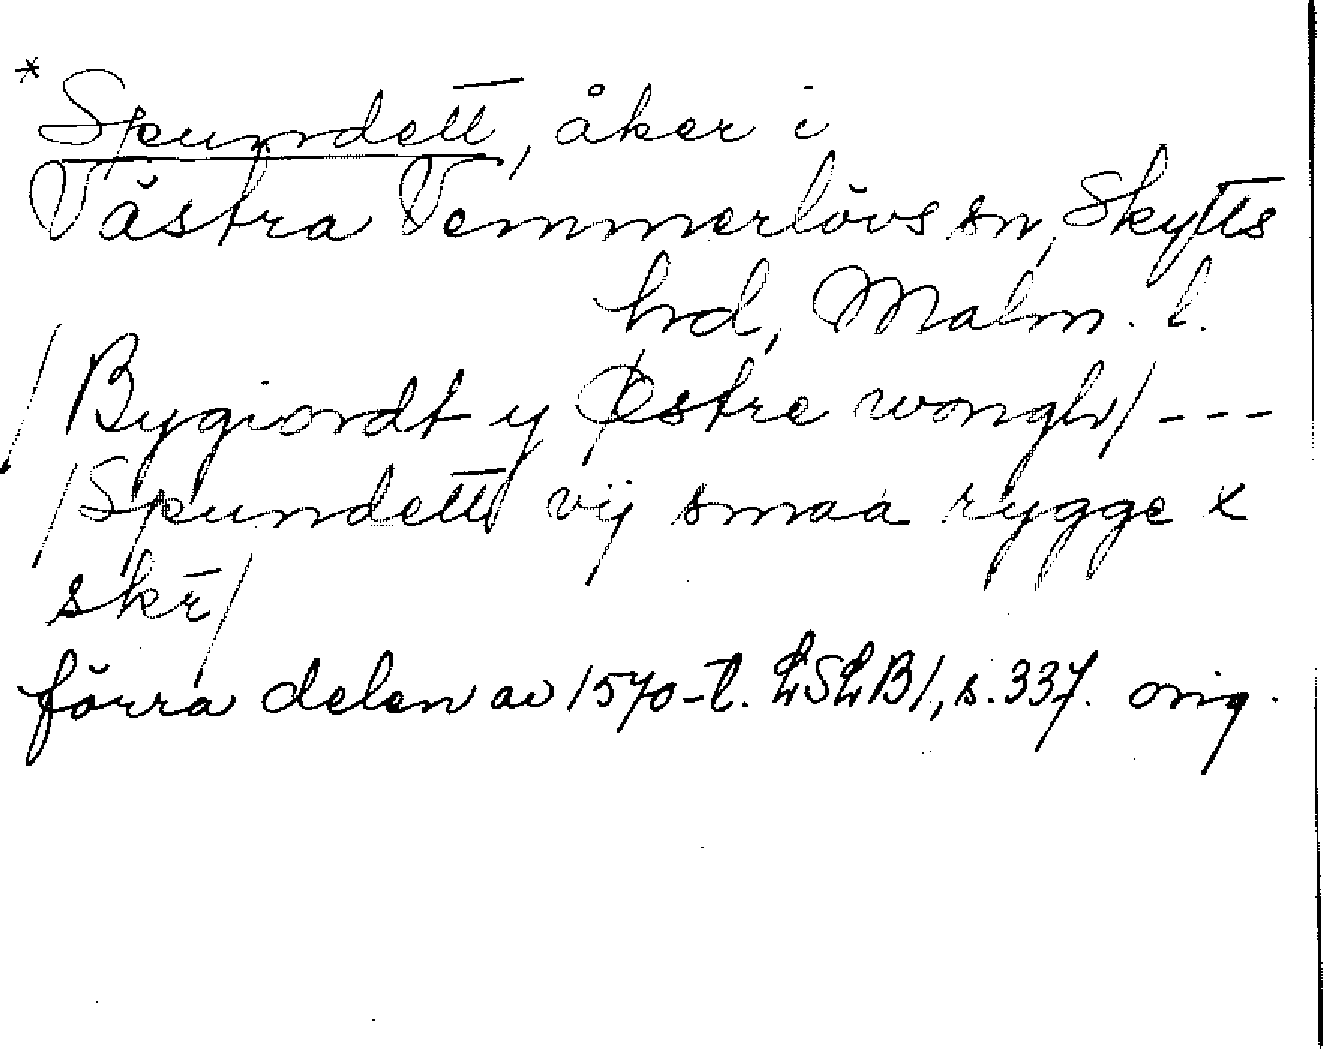 *Spundett, åker i
Västra Vemmerlövs sn, Skytts
hrd, Malm. l.
/Bygiordt y Østre wongh/ ---
/Spundett vij smaa rygge x
skr̄/
förra delen av 1570-t. LSLB1, s. 337. orig.